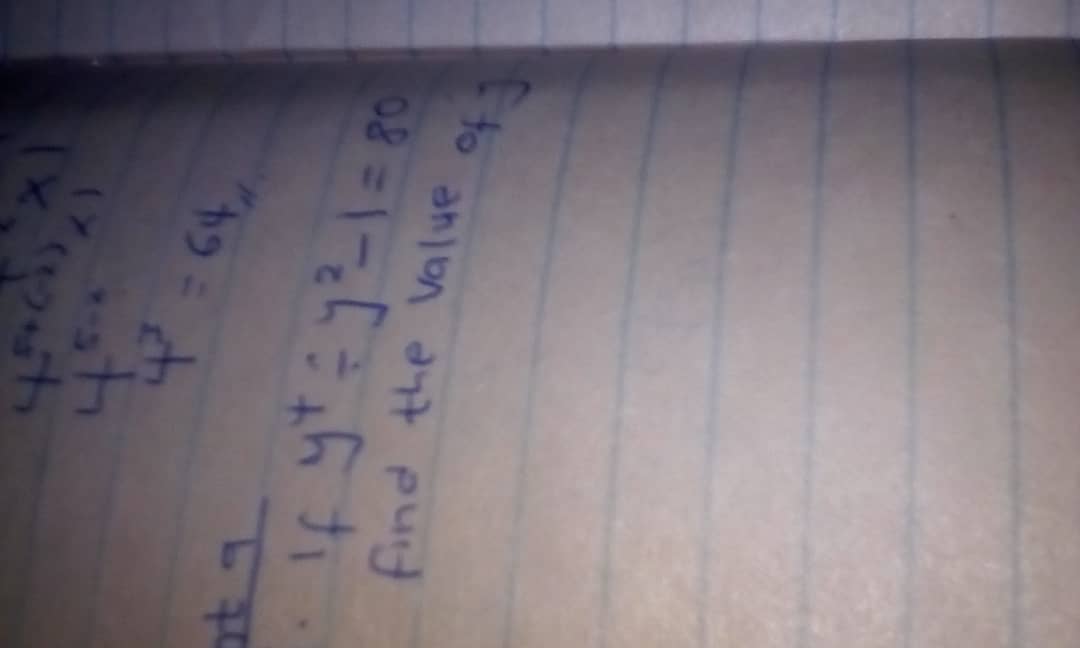 4⁵⁺⁽⁻²⁾ x 1
4⁵⁻² x 1
4³ = 64
. If y⁴ ÷ y² - 1 = 80
find the value of y